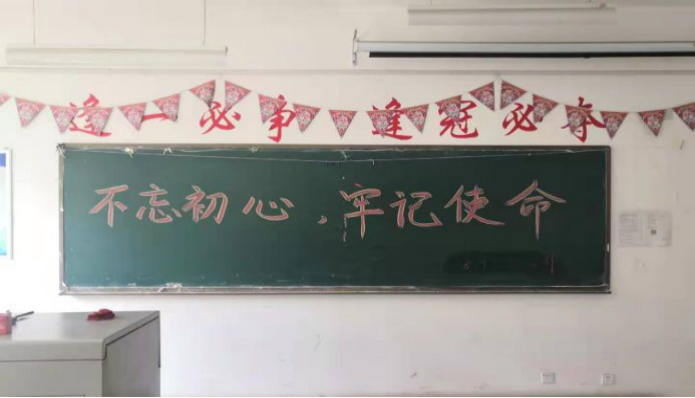 逢一必争 逢冠必夺
不忘初心，牢记使命